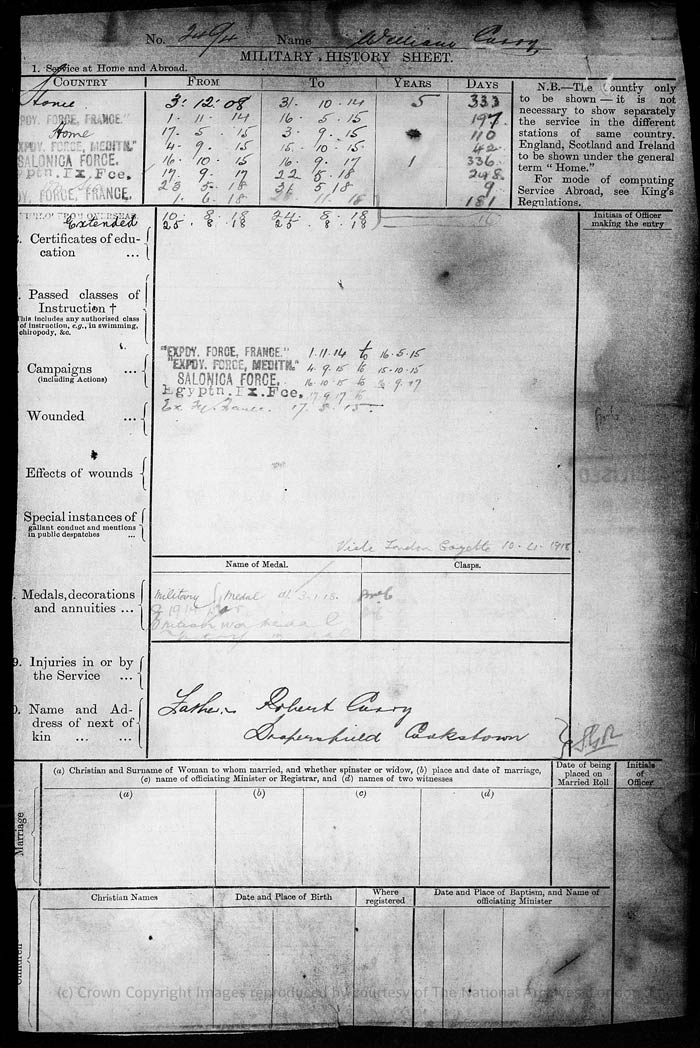 No. Name William
MILITARY HISTORY SHEET.
1. Service at Home and Abroad.
COUNTRY FROM TO YEARS DAYS
Home 3. 12. 08 31. 10. 14 5 333
PDY. FORCE, FRANCE." 1. 11. 14 16. 5. 15 197
Home 17. 5. 15 3. 9. 15 110
XPDY. FORCE, MEDITN." 4. 9. 15 15. 10. 15 42
SALONICA FORCE. 16. 10. 15 16. 9. 17 1 336
ptn. Ex. Fce. 17. 9. 17 22 5. 18 248
23 5. 18 31 5 18 9
Y. FORCE, FRANCE. 1. 6. 18 11. 18 181
10. 8. 18 24. 8. 18
Extended 25. 8. 18 25. 8. 18
N.B.—The Country only
to be shown — it is not
necessary to show separately
the service in the different
stations of same country.
England, Scotland and Ireland
to be shown under the general
term "Home."
For mode of computing
Service Abroad, see King's
Regulations.
Initials of Officer
making the entry
. Certificates of edu-
cation ...
. Passed classes of
Instruction †
This includes any authorised class
of instruction, e.g., in swimming,
chiropody, &c.
Campaigns ...
(including Actions)
"EXPDY. FORCE, FRANCE." 1.11.14 to 16.5.15
"EXPDY. FORCE, MEDITN." 4.9.15 to 15.10.15
SALONICA FORCE. 16.10.15 to 16.9.17
Egyptn. Ex. Fce. 17.9.17 to
Wounded ...
Effects of wounds
Special instances of
gallant conduct and mentions
in public despatches ...
Vide London Gazette
Name of Medal. Clasps.
. Medals, decorations
and annuities ...
Military Medal
British War Medal
9. Injuries in or by
the Service ...
0. Name and Ad-
dress of next of
kin ... ...
Father Robert
Drapersfield Cookstown
Marriage
(a) Christian and Surname of Woman to whom married, and whether spinster or widow, (b) place and date of marriage,
(c) name of officiating Minister or Registrar, and (d) names of two witnesses
Date of being
placed on
Married Roll
Initials
of
Officer
(a) (b) (c) (d)
Children
Christian Names Date and Place of Birth Where
registered Date and Place of Baptism, and Name of
officiating Minister
(c) Crown Copyright Images reproduced by courtesy of The National Archives, London,